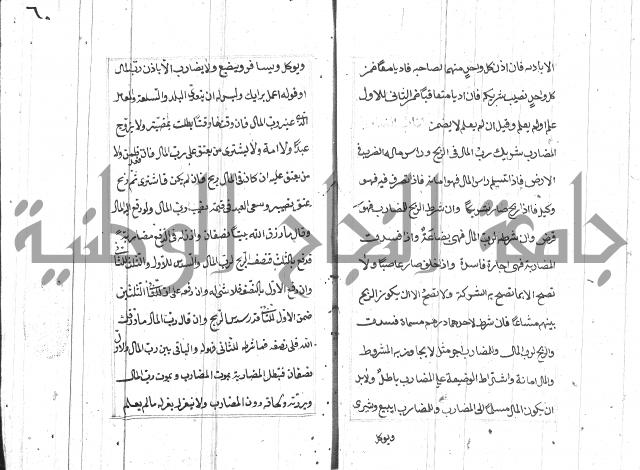 الا باذنه فان اذن كل واحد منهما لصاحبه فاديا معا ضمن
كل واحد نصيب شريكه فان اديا متعاقبا ضمن الثاني للاول
علم او لم يعلم وقيل ان لم يعلم لا يضمن
المضارب شريك رب المال في الربح وراس ماله الضرب في
الارض فاذا تسلم راس المال فهو امانة فاذا تصرف فيه فهو
وكيل فاذا ربح صار شريكا وان شرط الربح للمضارب فهو
قرض وان شرط لرب المال فهي بضاعة واذا فسدت
المضاربة فهي اجارة فاسدة واذا خالف صار غاصبا ولا
تصح الا بما تصح به الشركة ولا تصح الا ان يكون الربح
بينهم مشاعا فان شرط لاحدهما دراهم مسماة فسدت
والربح لرب المال وللمضارب اجر مثله لا يجاوز به المشروط
والمال امانة واشتراط الوضيعة على المضارب باطل ولا بد
ان يكون المال مسلما الى المضارب وللمضارب ان يبيع ويشتري
ويوكل
٦٠
ويوكل ويسافر ويبضع ولا يضارب الا باذن رب المال
او قوله اعمل برايك وليس له ان يتعدى البلد والسلعة والمعامل
الذي عينه رب المال فان وقت لها وقتا بطلت بمضيه ولا يزوج
عبدا ولا امة ولا يشتري من يعتق على رب المال فان فعل ضمن ولا
من يعتق عليه ان كان في المال ربح فان لم يكن فاشترى ثم ربح
عتق نصيبه وسعى العبد في قيمة نصيب رب المال ولو دفع المال
وقال ما رزق الله بيننا نصفان واذن له في الدفع مضاربة
فدفع بالثلث فنصف الربح لرب المال والسدس للاول والثلث للثاني
وان دفع الاول بالنصف فلا شيء له وان دفعه على ان للثاني الثلثين
ضمن الاول للثاني قدر سدس الربح وان قال رب المال ما رزقك
الله فلي نصفه فما شرطه للثاني فهو له والباقي بين رب المال والاول
نصفان وتبطل المضاربة بموت المضارب وبموت رب المال
وبردته ولحاقه دون المضارب ولا ينعزل بعزله ما لم يعلم
جامعة النجاح الوطنية